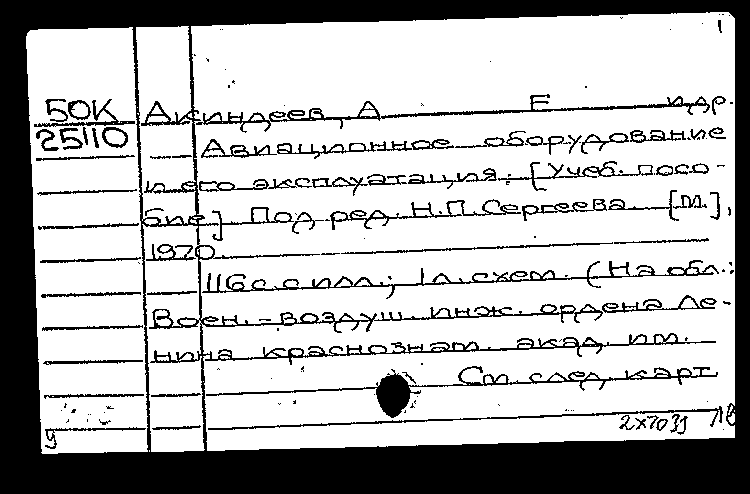 1
50К Акиндеев, А Е и др.
25110 Авиационное оборудование
и его эксплуатация. [Учеб. посо-
бие]. Под ред. Н.П.Сергеева. [М.],
1970.
116 с. с илл.; 1 л. схем. (На обл.:
Воен.-воздуш. инж. ордена Ле-
нина краснознам. акад. им.
См след. карт
9